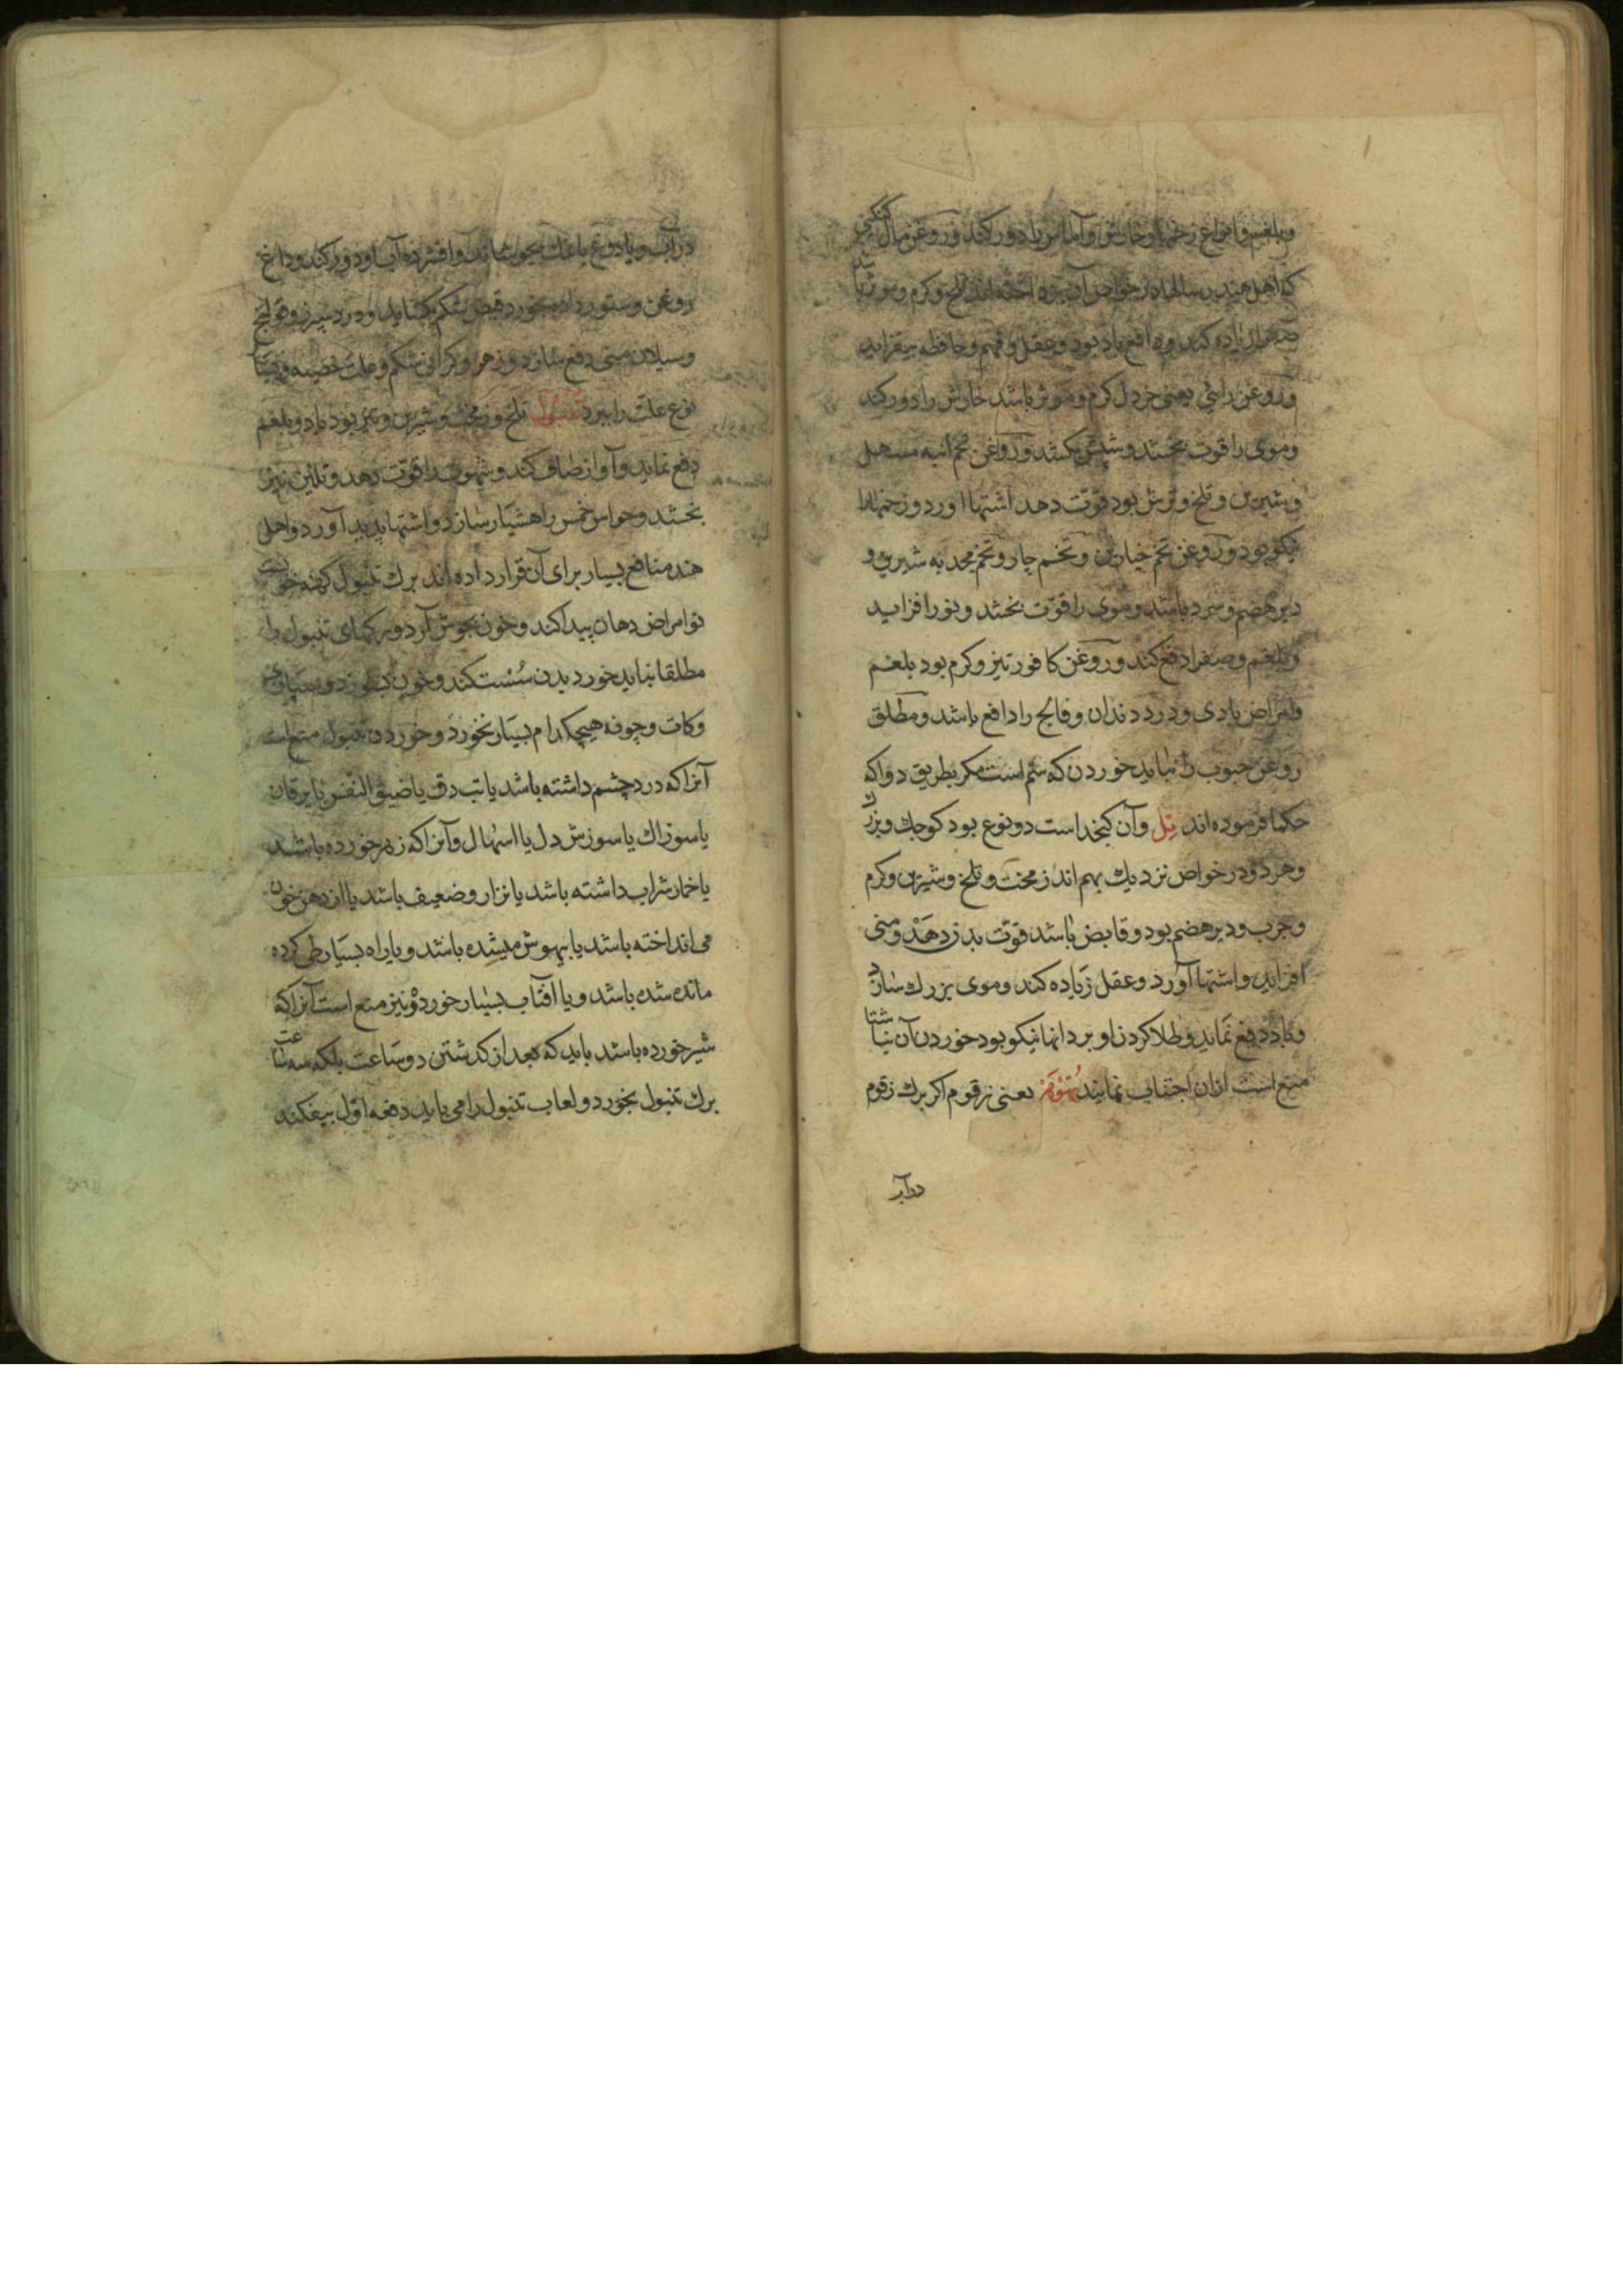 و بلغم و انواع زخمها و خارش و آماس را دور کند و روغن مال کنکنی
که اهل هند رساله‌ها در خواص آن پرداخته اند تلخ و کرم و موثر باشد
صفرا زیاده کند و دافع باد بود و عقل و فهم و حافظه بیفزاید
و روغن رائی یعنی خردل کرم و موثر باشد خارش را دور کند
و موی را قوت بخشد و شپش بکشد و روغن تخم انبه مسهل
و شیرین و تلخ و ترش بود قوّت دهد اشتها اورد و زخمها را
نیکو بود و روغن تخم خیارین و تخم چار و تخم محمد به شیرین و
دیر هضم و سرد باشد و موی را قوّت بخشد و نور افزاید
و بلغم و صفرا دفع کند و روغن کافور تیز و کرم بود بلغم
و امراض بادی و درد دندان و فالج را دافع باشد و مطلق
روغن حبوب را نباید خوردن که سّم است مکر بطریق دوا که
حکما فرموده اند تِل و آن کنجد است دو نوع بود کوچك و بزرك
و هر دو در خواص نزدیك بهم اند زمخت و تلخ و شیرین و کرم
و چرب و دیر هضم بود و قابض باشد قوّت بدن دهد و منی
افزاید و اشتها آورد و عقل زیاده کند و موی بزرك سازد
و باد دفع نماید و طلا کردن او بر دانها نیکو بود خوردن آن شتا
منع است از ان اجتناب نمایند تهوهر یعنی زقوم اکر برك زقوم
در آب
در آب و یا دوغ یا نمك بجوشانند و افشرده آب او دور کند و داغ
روغن و ستور داده بخورد قبض شکم بکشاید و درد سپرز و قولنج
و سیلان منی دفع سازد و زهر و کرانی شکم و علت خصیه و
نوع علت را ببرد تنبول تلخ و زمخت و شیرین و تیز بود باد و بلغم
دفع نماید و آواز صاف کند و شهوت را قوّت دهد و تلئین نیز
بخشد و حواس خمس را هشیار سازد و اشتها پدید آورد و اهل
هند منافع بسیار برای آن قرار داده اند برك تنبول کهنه خوبست
نو امراض دهان پیدا کند و خون بجوش آرد و رکهای تنبول را
مطلقا نباید خورد بدن سُست کند و خون و سپاری
و کات و چونه هیچکدام بسیار نخورد و خوردن تنبول منع است
آنرا که درد چشم داشته باشد یا تب دق یا ضیق النفس یا یرقان
یا سوزاك یا سوزش دل یا اسهال و آنرا که زهر خورده باشد
یا خمار شراب داشته باشد یا نزار و ضعیف باشد یا از دهن خون
می انداخته باشد یا بیهوش میشده باشد و یا راه بسیار طی کرده
مانده شده باشد و یا آفتاب بسیار خورده و نیز منع است آنرا که
شیر خورده باشد باید که بعد از کذشتن دو ساعت بلکه سه ساعت
برك تنبول بخورد و لعاب تنبول را می باید دفعه اوّل بیفکند